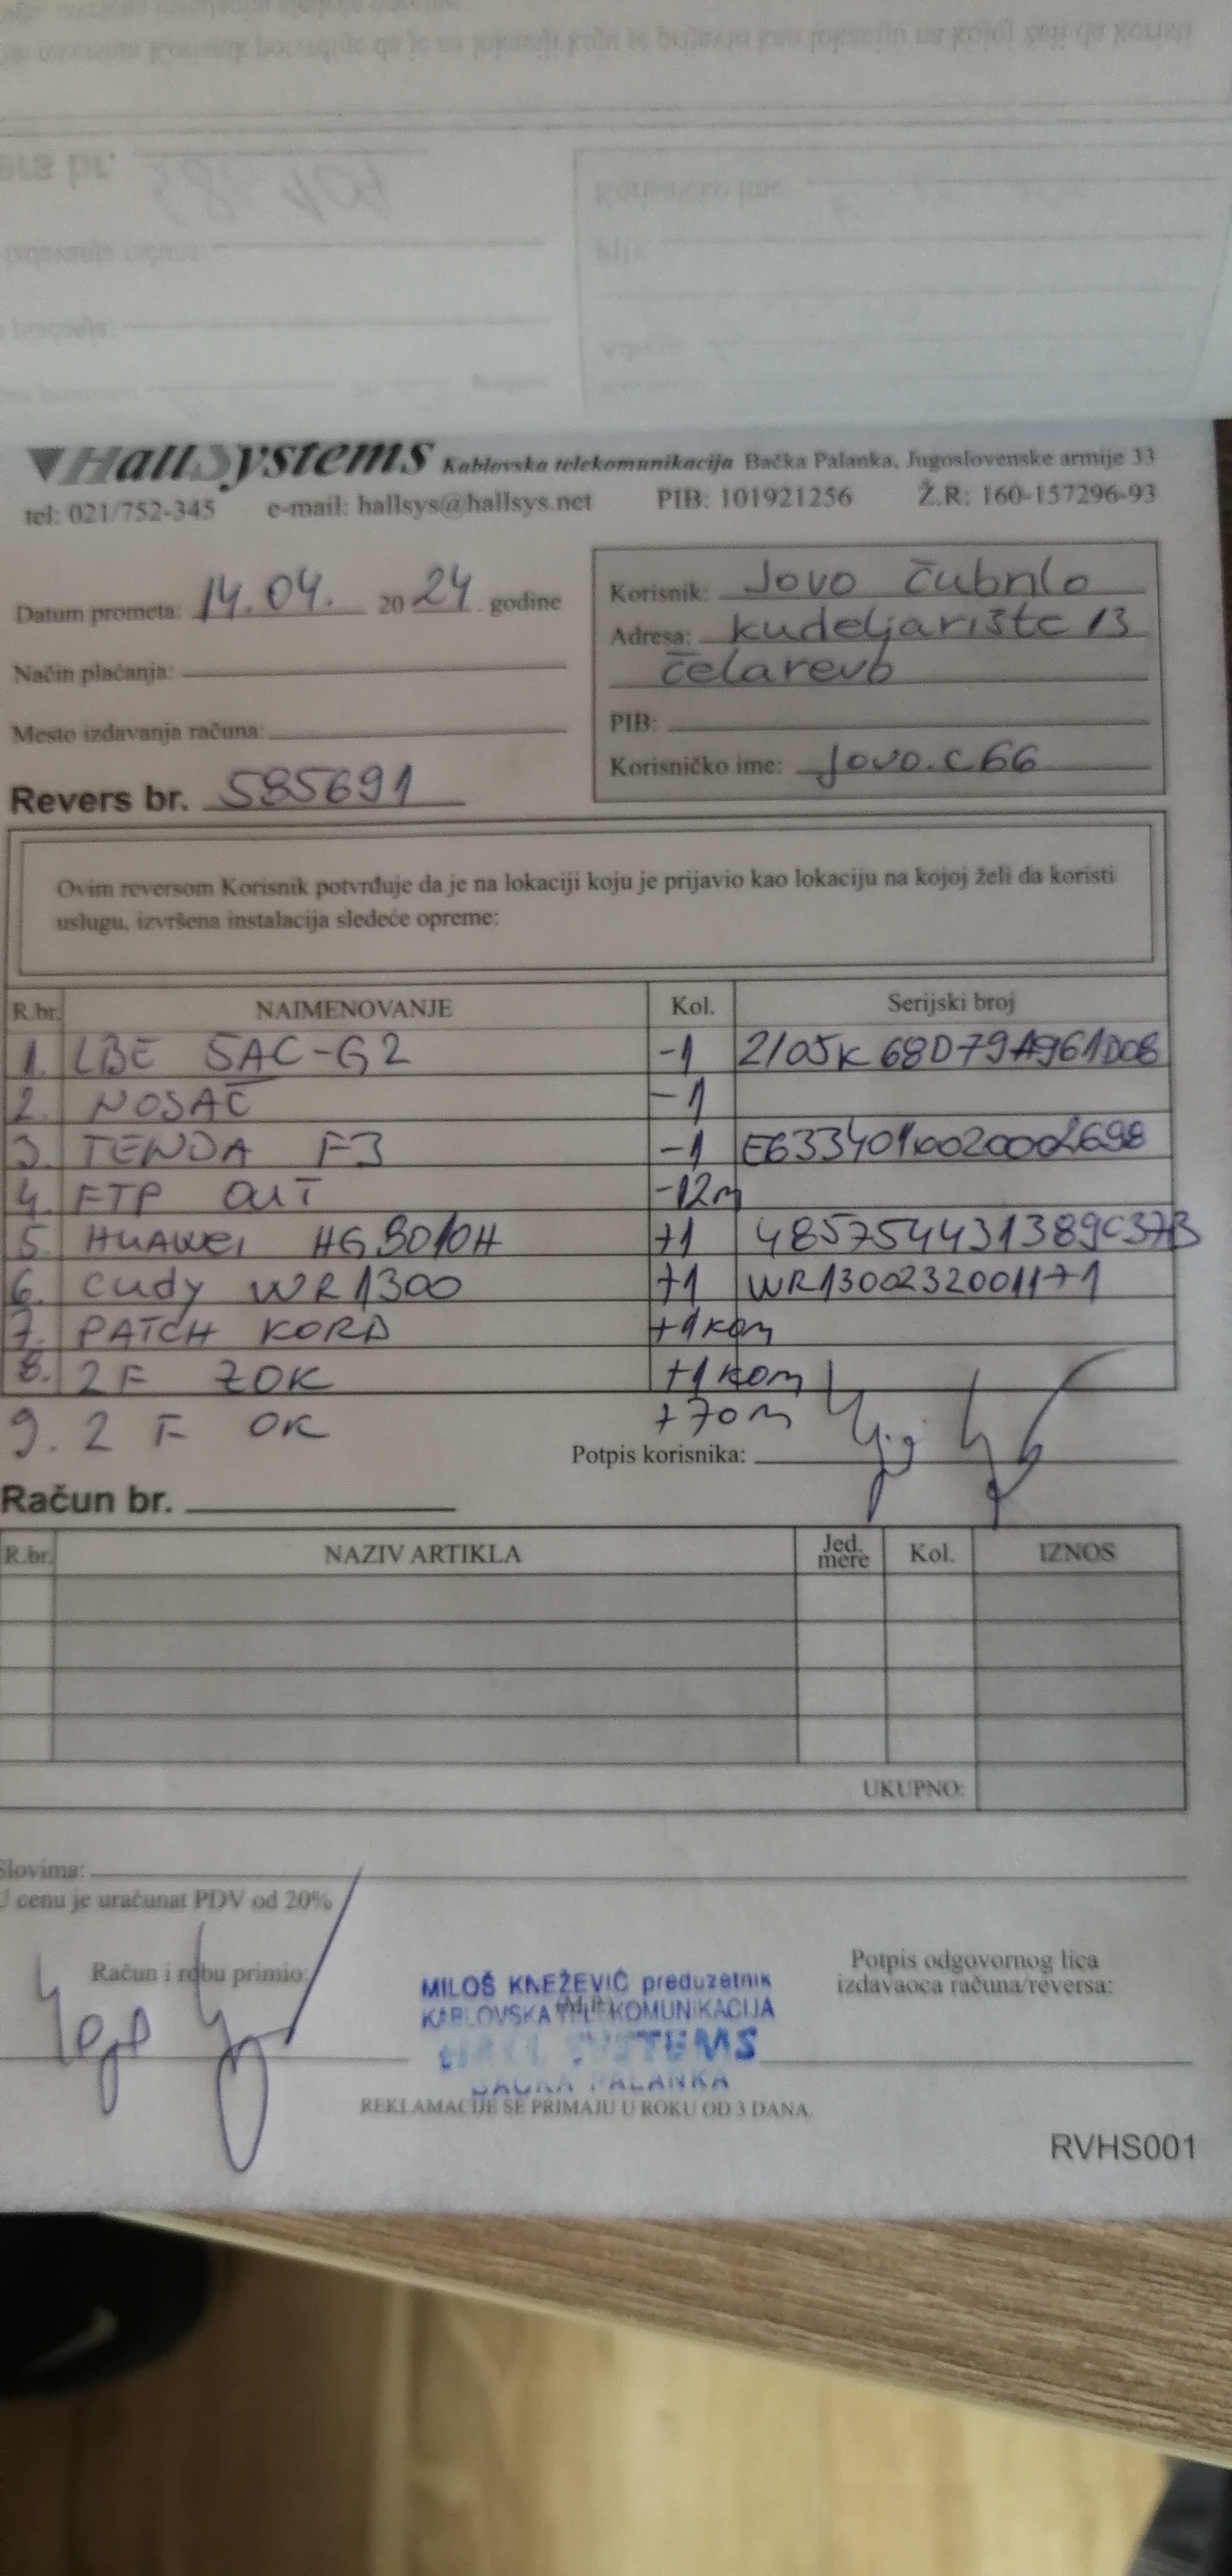 HallSystems Kablovska telekomunikacija Bačka Palanka, Jugoslovenske armije 33
tel: 021/752-345 e-mail: hallsys@hallsys.net PIB: 101921256 Ž.R: 160-157296-93
Datum prometa: 14.04. 2024. godine
Način plaćanja:
Mesto izdavanja računa:
Revers br. 585691
Korisnik: Jovo Čubrilo
Adresa: Kudeljarište 13
Čelarevo
PIB:
Korisničko ime: jovo.c66
Ovim reversom Korisnik potvrđuje da je na lokaciji koju je prijavio kao lokaciju na kojoj želi da koristi
uslugu, izvršena instalacija sledeće opreme:
R.br. NAIMENOVANJE Kol. Serijski broj
1. LBE 5AC-G2 -1 2105K68D79A961D08
2. NOSAČ -1
3. TENDA F3 -1
4. FTP OUT -12m
5. HUAWEI HG8010H +1 485754431389C37B
6. Cudy WR1300 +1 WR1300232001171
7. PATCH KORD +1kom
8. 2F ZOK +1kom
9. 2F OK +70m
Potpis korisnika:
Račun br.
R.br. NAZIV ARTIKLA Jed. mere Kol. IZNOS
UKUPNO:
Slovima:
U cenu je uračunat PDV od 20%
Račun i robu primio:
MILOŠ KNEŽEVIĆ preduzetnik
KABLOVSKA TELEKOMUNIKACIJA
HALL SYSTEMS
BAČKA PALANKA
Potpis odgovornog lica
izdavaoca računa/reversa:
REKLAMACIJE SE PRIMAJU U ROKU OD 3 DANA
RVHS001